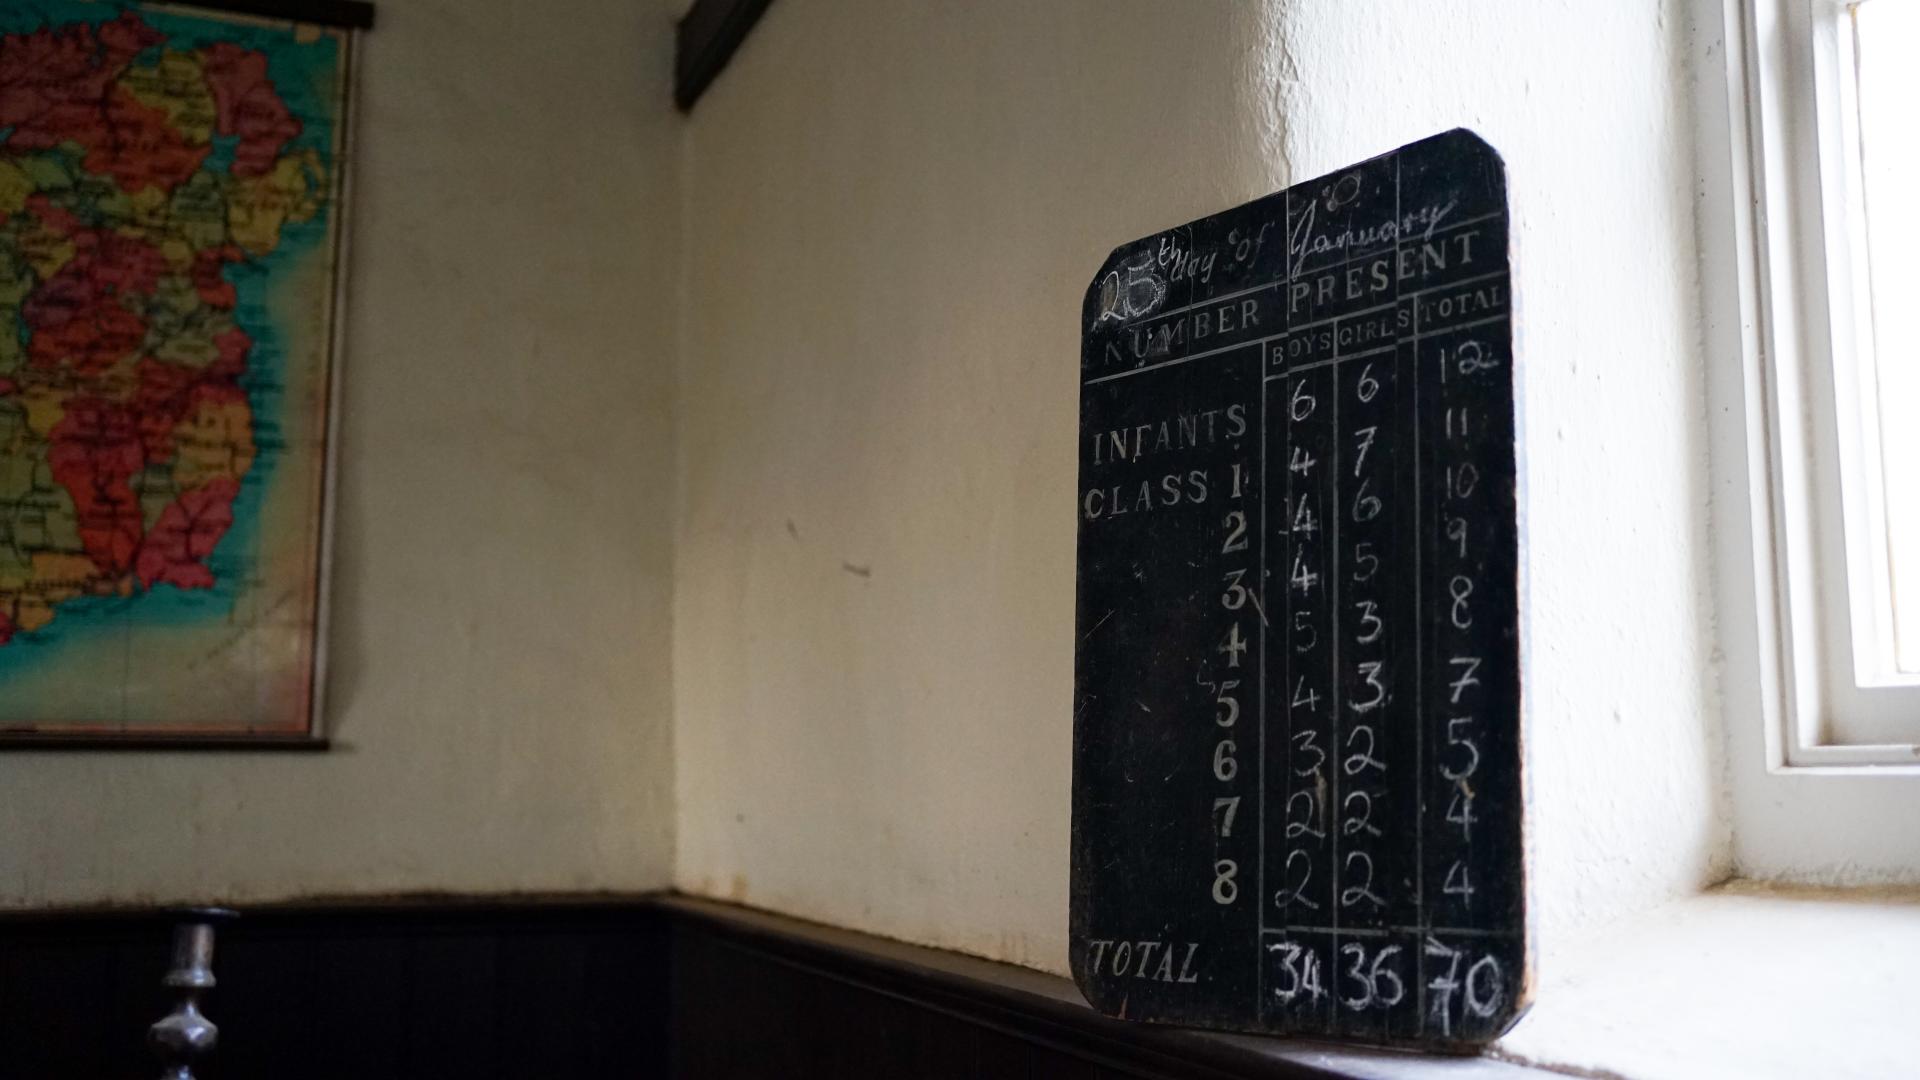 25th day of January
NUMBER PRESENT
BOYS GIRLS TOTAL
INFANTS 6 6 12
CLASS 1 4 7 11
2 4 6 10
3 4 5 9
4 5 3 8
5 4 3 7
6 3 2 5
7 2 2 4
8 2 2 4
TOTAL 34 36 70